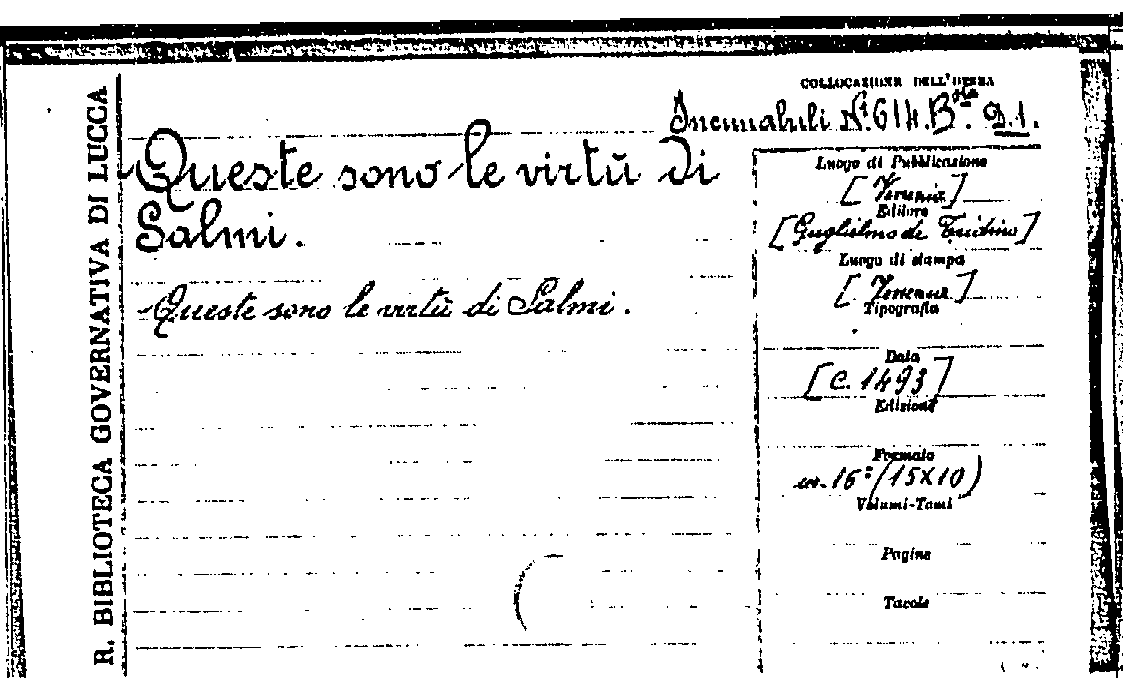 R. BIBLIOTECA GOVERNATIVA DI LUCCA
COLLOCAZIONE DELL'OPERA
Incunabuli N.º 614. B.ta D.1.
Queste sono le virtù di
Salmi.
Queste sono le virtù di Salmi.
Luogo di Pubblicazione
[Venezia]
Editore
[Guglielmo de Tridino]
Luogo di stampa
[Venezia]
Tipografia
Data
[c. 1493]
Edizione
Formato
in-16º (15X10)
Volumi-Tomi
Pagine
Tavole